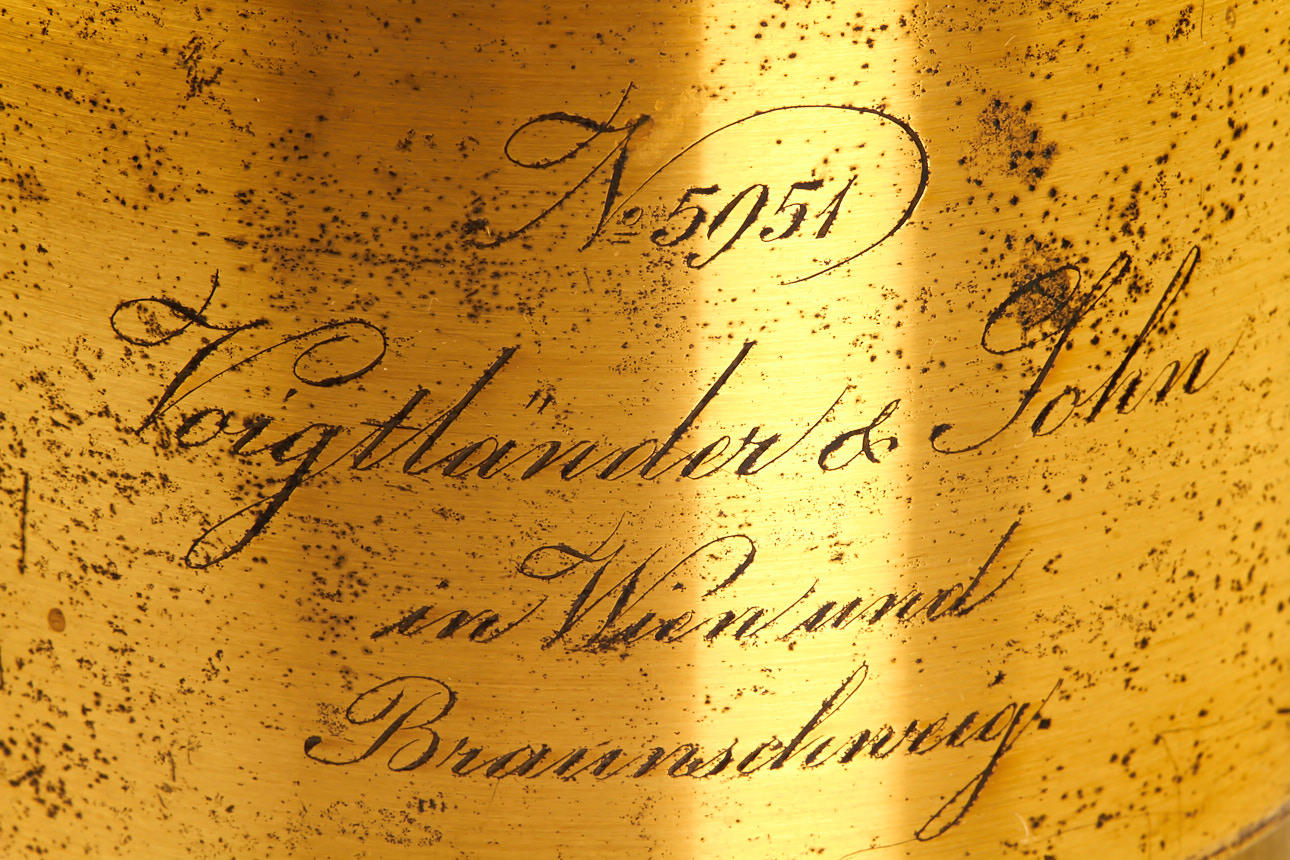 No 5951
Voigtländer & Sohn
in Wien und
Braunschweig